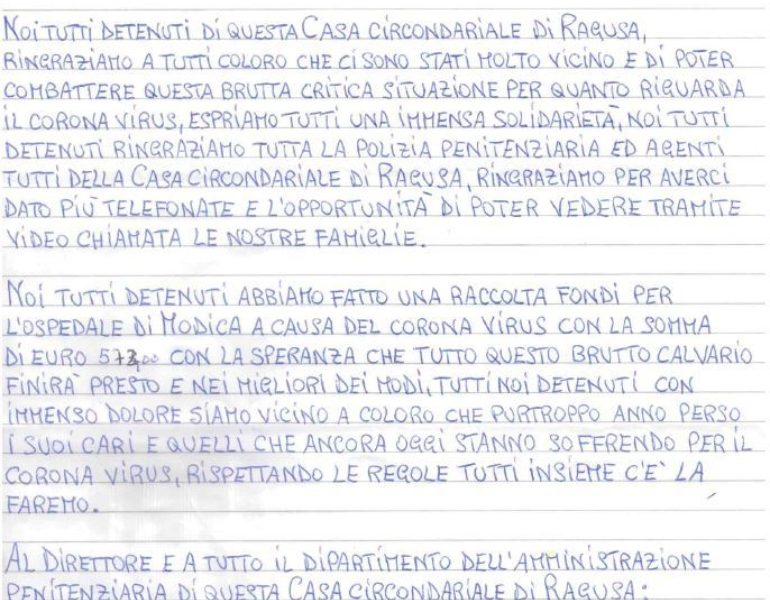 NOI TUTTI DETENUTI DI QUESTA CASA CIRCONDARIALE DI RAGUSA,
RINGRAZIAMO A TUTTI COLORO CHE CI SONO STATI MOLTO VICINO E DI POTER
COMBATTERE QUESTA BRUTTA CRITICA SITUAZIONE PER QUANTO RIGUARDA
IL CORONA VIRUS, ESPRIAMO TUTTI UNA IMMENSA SOLIDARIETÀ, NOI TUTTI
DETENUTI RINGRAZIAMO TUTTA LA POLIZIA PENITENZIARIA ED AGENTI
TUTTI DELLA CASA CIRCONDARIALE DI RAGUSA, RINGRAZIAMO PER AVERCI
DATO PIÙ TELEFONATE E L'OPPORTUNITÀ DI POTER VEDERE TRAMITE
VIDEO CHIAMATA LE NOSTRE FAMIGLIE.
NOI TUTTI DETENUTI ABBIAMO FATTO UNA RACCOLTA FONDI PER
L'OSPEDALE DI MODICA A CAUSA DEL CORONA VIRUS CON LA SOMMA
DI EURO CON LA SPERANZA CHE TUTTO QUESTO BRUTTO CALVARIO
FINIRÀ PRESTO E NEI MIGLIORI DEI MODI, TUTTI NOI DETENUTI CON
IMMENSO DOLORE SIAMO VICINO A COLORO CHE PURTROPPO ANNO PERSO
I SUOI CARI E QUELLI CHE ANCORA OGGI STANNO SOFFRENDO PER IL
CORONA VIRUS, RISPETTANDO LE REGOLE TUTTI INSIEME C'E' LA
FAREMO.
AL DIRETTORE E A TUTTO IL DIPARTIMENTO DELL'AMMINISTRAZIONE
PENITENZIARIA DI QUESTA CASA CIRCONDARIALE DI RAGUSA: